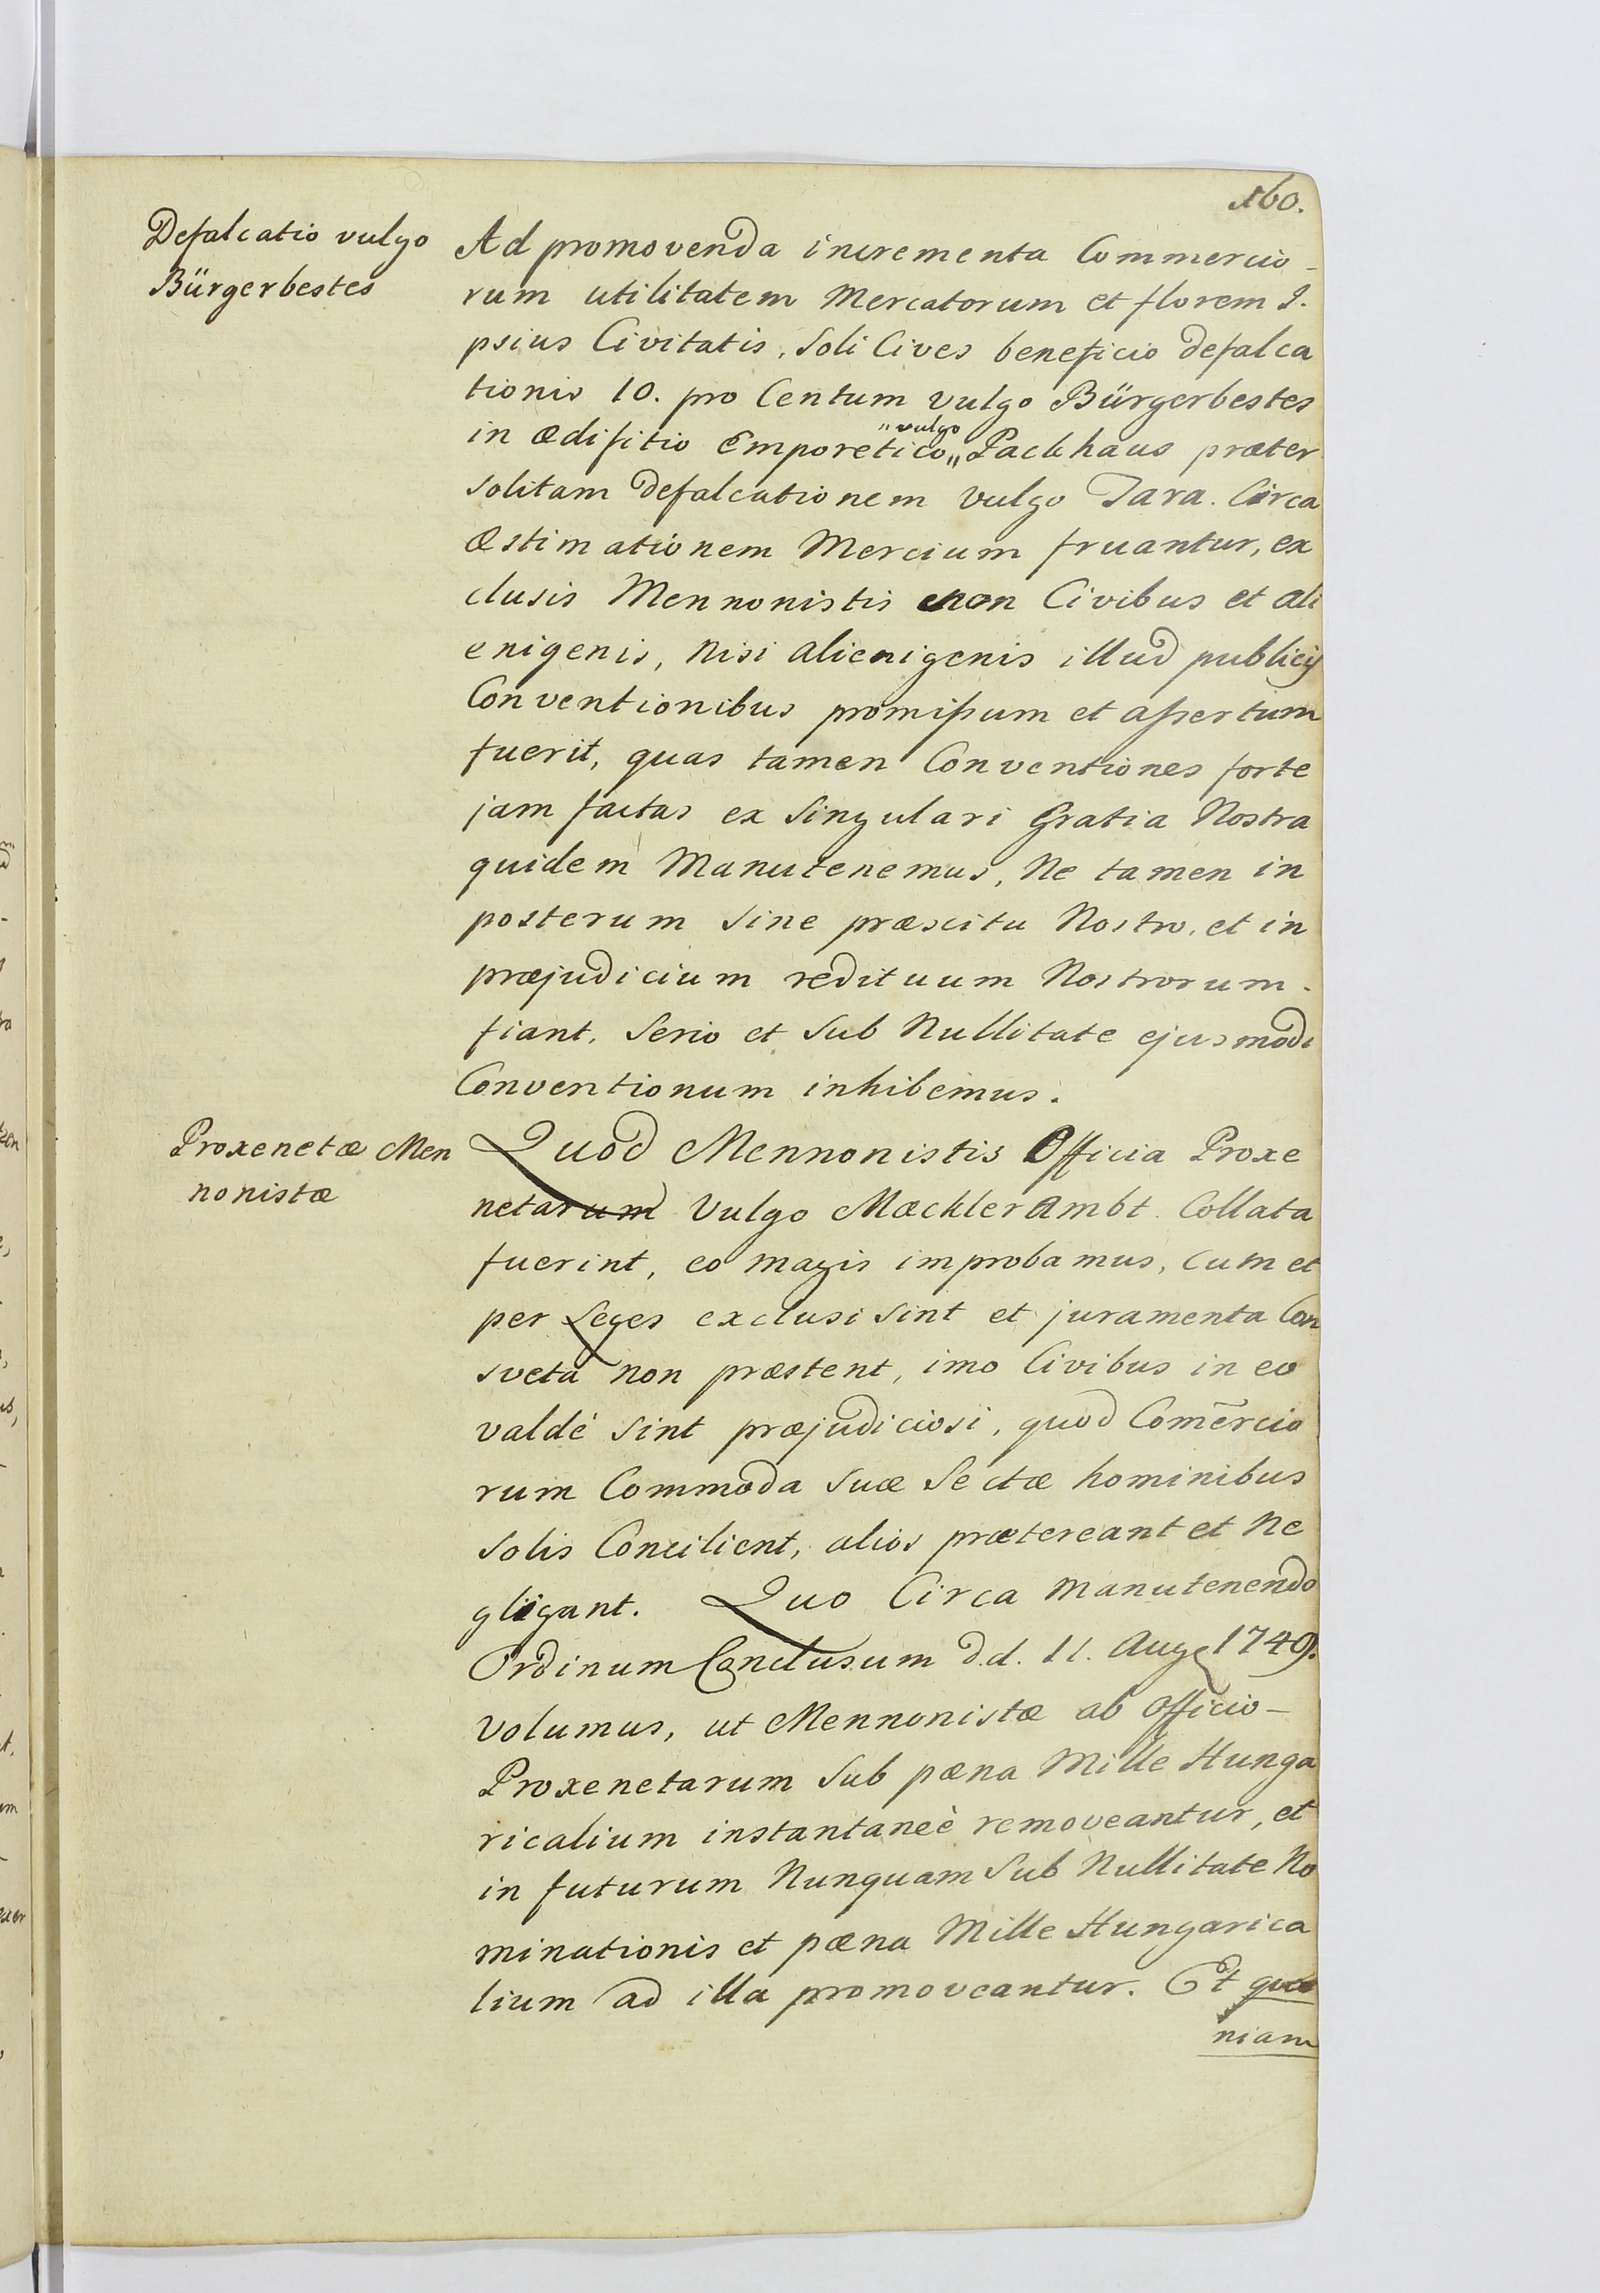 160.
Defalcatio vulgo
Bürgerbestes
Ad promovenda incrementa Commercio-
rum utilitatem Mercatorum et florem I.
psius Civitatis, Soli Cives beneficio defalca
tionis 10. pro Centum vulgo Bürgerbestes
in ædifitio Emporetico „vulgo„ Packhaus præter
solitam defalcationem vulgo Tara. Circa
Æstimationem Mercium fruantur, ex
clusis Mennonistis non Civibus et ali
enigenis, nisi alienigenis illud publicij
Conventionibus promißum et aßertum
fuerit, quas tamen Conventiones forte
jam factas ex Singulari Gratia Nostra
quidem Manutenemus, Ne tamen in
posterum Sine præscitu Nostro, et in
præjudicium redituum Nostrorum.
fiant, Serio et Sub Nullitate ejusmodi
Conventionum inhibemus.
Proxenetæ Men
nonistæ
Quod Mennonistis Officia Proxe
netarum Vulgo Mæcklerambt Collata
fuerint, eo magis improbamus, Cum et
per Leges exclusi Sint et juramenta Con
sveta non præstent, imo Civibus in eo
valdè Sint præjudiciosi, quod Com̃ercio
rum Commoda Suæ Sectæ hominibus
Solis Concilient, alios prætereant et Ne
gligant. Quo Circa Manutenendo
Ordinum Conclusum d.d. 11. Aug 1749.
Volumus, ut Mennonistæ ab Officio-
Proxenetarum Sub pæna Mille Hunga
ricalium instantaneè removeantur, et
in futurum Nunquam Sub Nullitate No
minationis et pæna Mille Hungarica
lium ad illa promoveantur. Et quo
niam